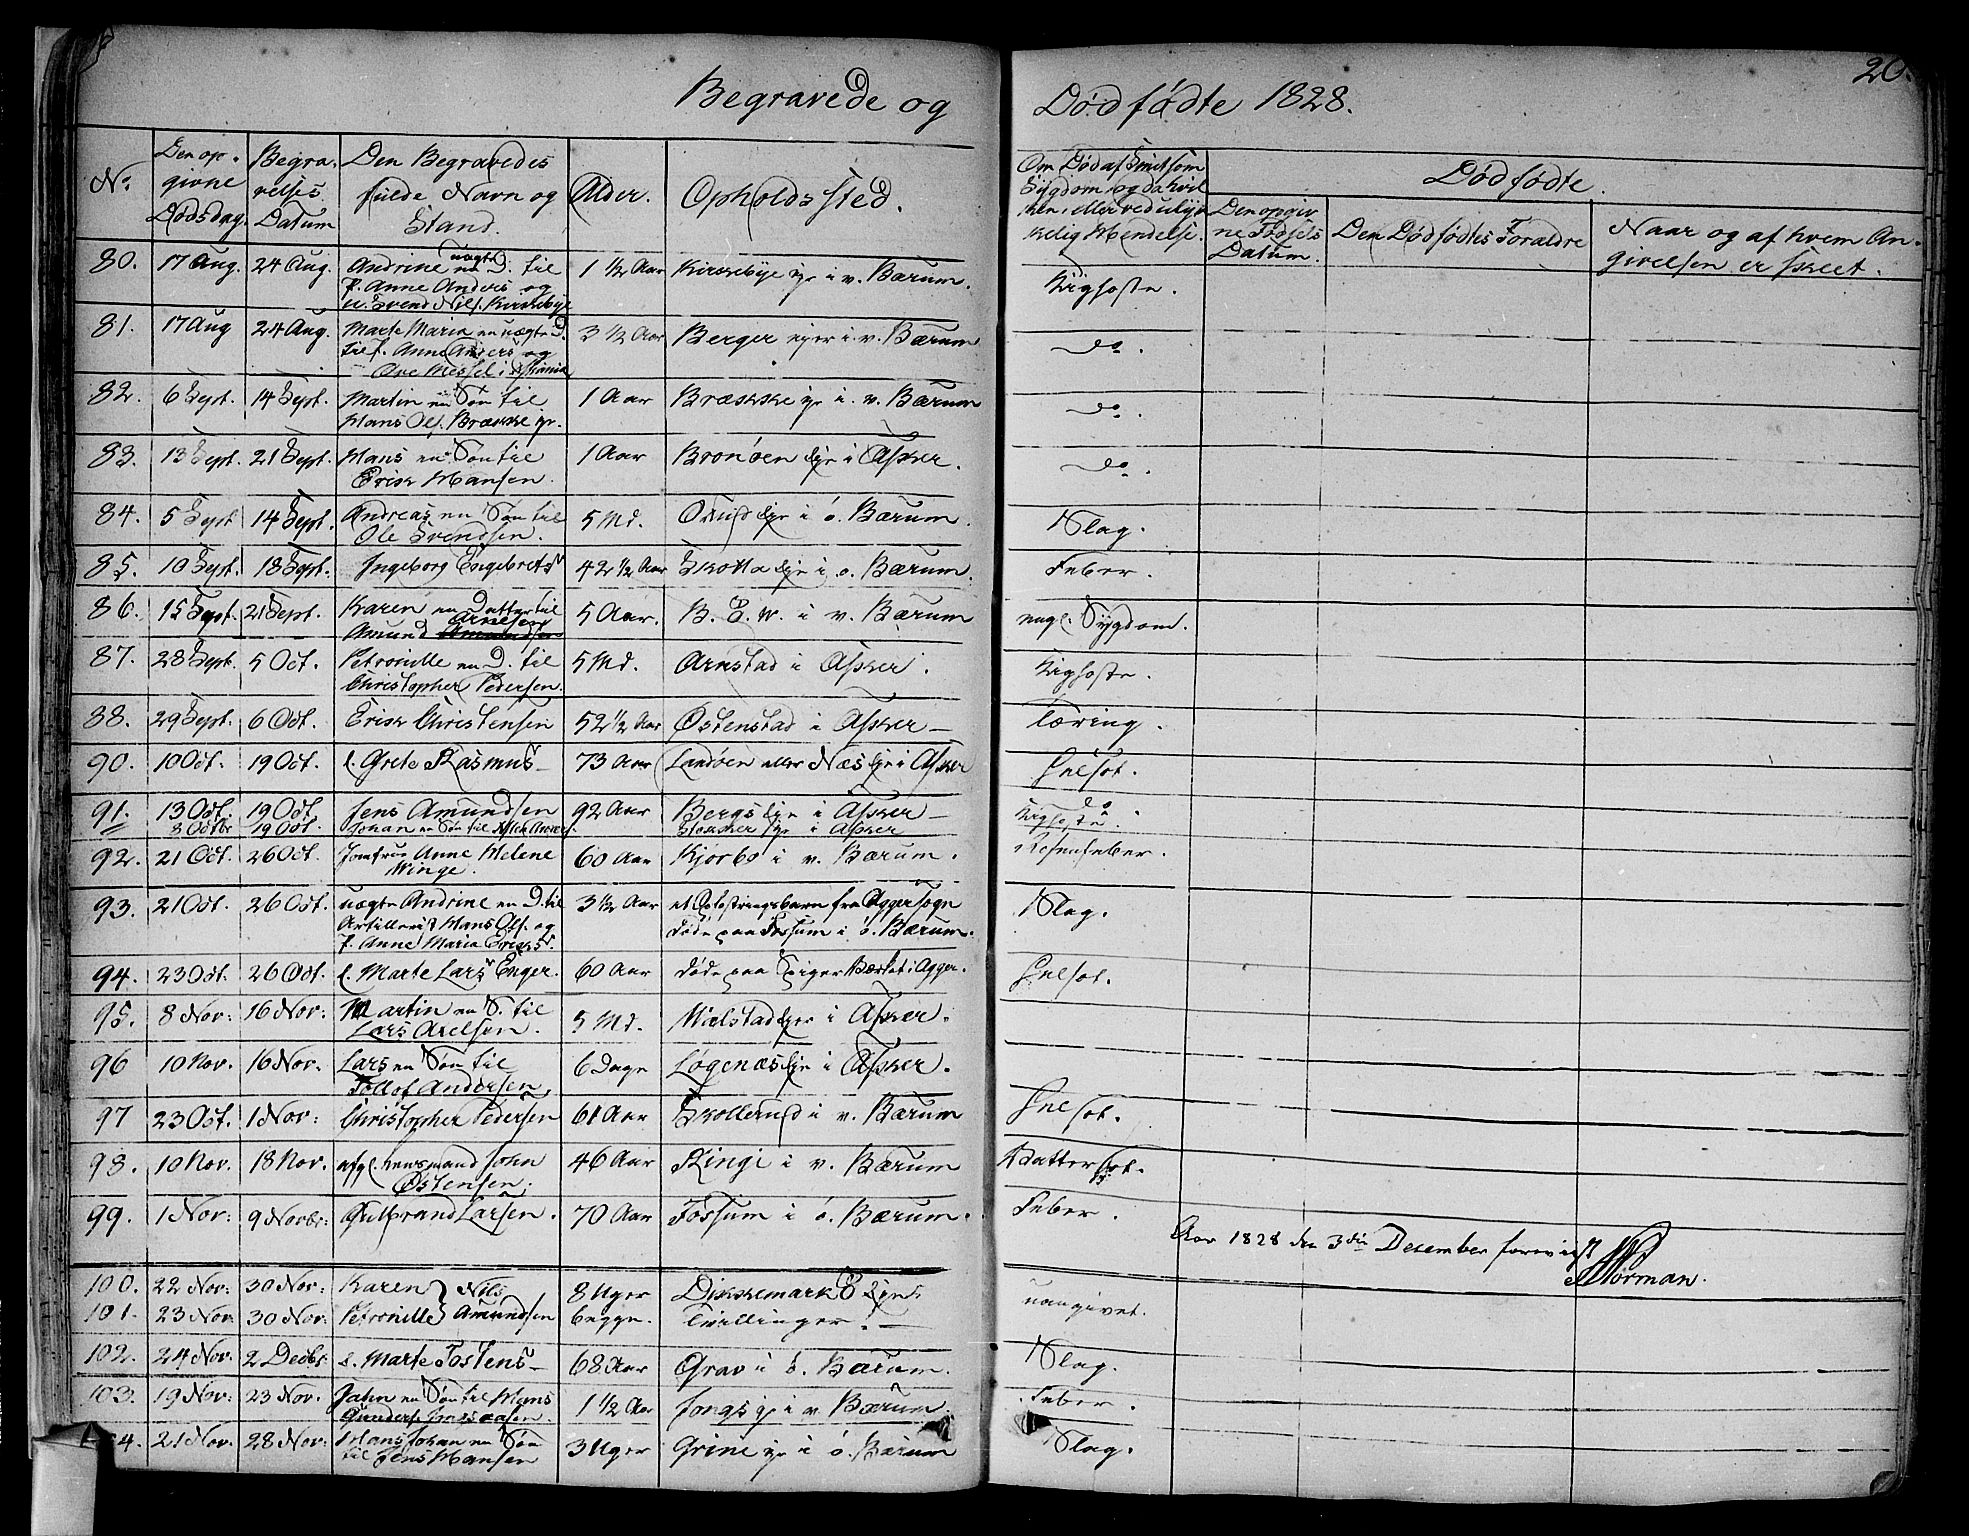 20.
Begravede og Dødfødte 1828.
No. Den opgivne Dødsdag. Begravelses Datum Den Begravedes fulde Navn og Stand. Alder. Opholdssted. Om Død af Smitsom Sygdom og da hvilken, eller ved ulykkelig Hendelse. Dødfødte.
Den opgivne Fødsels Datum. Den Dødfødtes Foraldre Naar og af hvem Angivelsen er skeet.
80. 17 Aug. 24 Aug. Andrine uægte D. til 1 1/2 Aar Kirkebye i v. Bærum. Kighoste.
P. Anne Anders og
u. Svend Nils. Kirkebye
81. 17 Aug 24 Aug. Marte Maria en uægte D. 3 1/2 Aar Berger i v. Bærum do.
til P. Anne Anders og
Ove Messel i
82. 6 Sept. 14 Sept. Martin en Søn til 1 Aar Brække i v. Bærum do.
Hans Ols. Brække
83. 13 Sept. 21 Sept. Hans en Søn til 1 Aar Bronøen i Asker. do.
Erik Hansen.
84. 5 Sept 14 Sept. Andreas en Søn til 5 Md. i ö. Bærum. Slag.
Ole Svendsen.
85. 10 Sept. 18 Sept. Ingeborg Engebrets 42 1/2 Aar Skotta i ö. Bærum. Feber.
86. 15 Sept. 21 Sept. Karen en Datter til 5 Aar. B. E. W. i v. Bærum Sygdom.
Amund Arnesen
87. 28 Sept. 5 Oct. Petronille en D. til 5 Md. Arnstad i Asker. Kighoste.
Christopher Pedersen.
88. 29 Sept. 6 Oct. Erik Christensen 52 1/2 Aar Østenstad i Asker Tæring.
90. 10 Oct. 19 Oct. Grete Rasmus 73 Aar Landøen eller Næs i Asker
91. 13 Oct. 19 Oct. Jens Amundsen 92 Aar Bergs i Asker do
8 Octbr 19 Oct. Johan en Søn til i Asker Kighoste.
92. 21 Oct. 26 Oct. Jomfrue Anne Helene 60 Aar Kjørbo i v. Bærum.
Winge.
93. 21 Oct. 26 Oct. uægte Andrine en D. til 3 1/2 Aar et Opfostringsbarn fra Aggersogn Slag.
Artillerist Hans Ols. og døde paa Fossum i ö. Bærum.
P. Anne Maria Ericks
94. 23 Oct. 26 Oct. Marte Lars Enger. 60 Aar døde paa i Agger.
95. 8 Nov: 16 Nov: Martin en S. til 5 Md. Hvalstad i Asker.
Lars Axelsen.
96 10 Nov. 16 Nov. Lars en Søn til 6 Dage Løgenæs i Asker.
Tollof Andersen
97 23 Oct. 1 Nov: Christopher Pedersen 61 Aar Skollerud i v. Bærum
98. 10 Nov. 18 Nov. John 46 Aar Ringi i v. Bærum Vattersot.
Østensen.
99. 1 Nov: 9 Novbr: Gulbrand Larsen. 70 Aar Fossum i ö. Bærum. Feber.
Aar 1828 den 3die December
Norman.
100. 22 Nov: 30 Nov: Karen Nils 8 Uger Dikkemark
101. 23 Nov 30 Nov: Petronille Amundsen begge. Tvillinger. uangivet.
102. 24 Nov: 2 Decbr Marte Tostens 68 Aar Grav i ö. Bærum. Slag.
103. 19 Nov: 23 Nov. en Søn til Hans 1 1/2 Aar i v Bærum. Feber.
104. 21 Nov. 28 Nov: Hans Johan en Søn 3 Uger Grine i ö. Bærum Slag.
til Jens Hansen